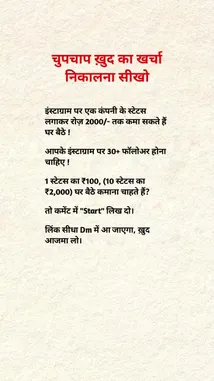 चुपचाप ख़ुद का खर्चा
निकालना सीखो
इंस्टाग्राम पर एक कंपनी के स्टेटस
लगाकर रोज़ 2000/- तक कमा सकते हैं
घर बैठे !
आपके इंस्टाग्राम पर 30+ फॉलोअर होना
चाहिए !
1 स्टेटस का ₹100, (10 स्टेटस का
₹2,000) घर बैठे कमाना चाहते हैं?
तो कमेंट में "Start" लिख दो।
लिंक सीधा Dm में आ जाएगा, ख़ुद
आजमा लो।